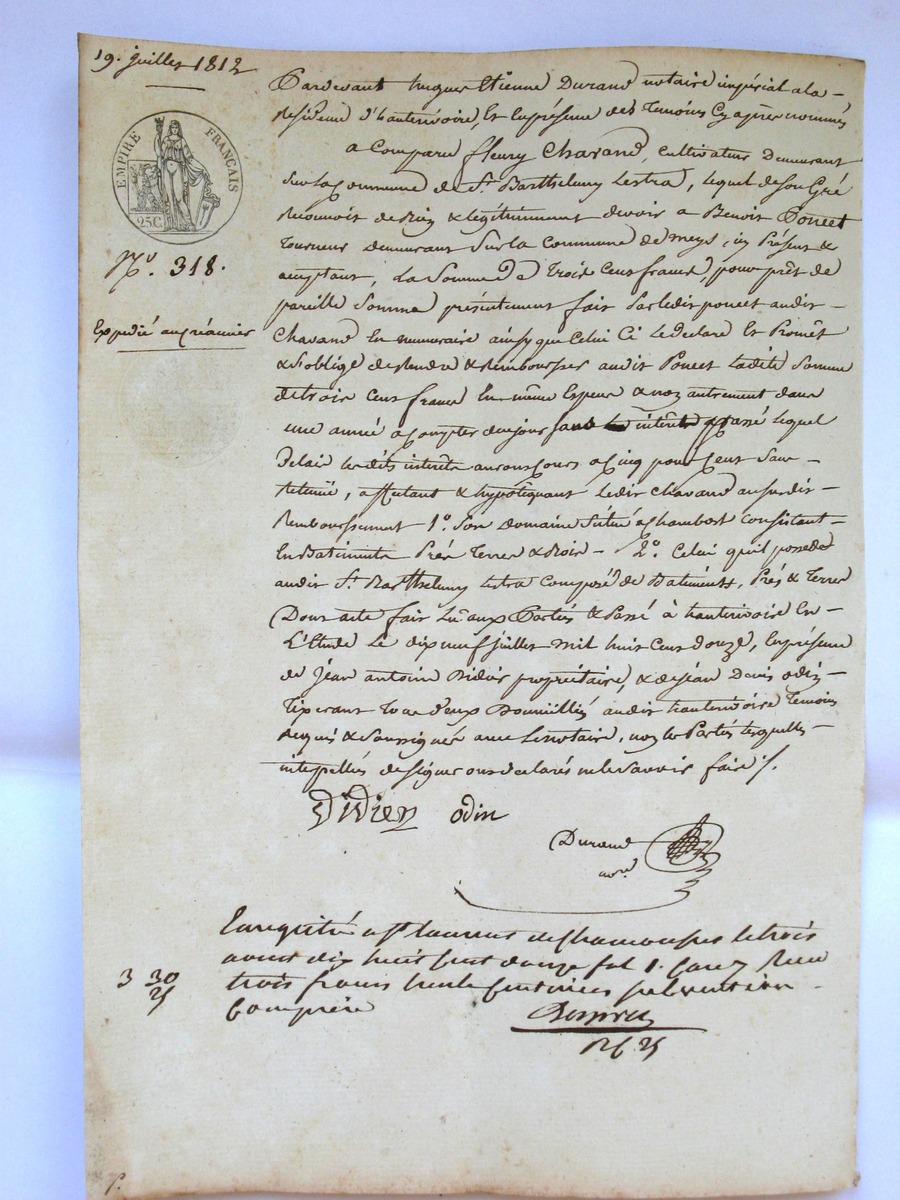 19. juillet 1812
EMPIRE FRANÇAIS
25C
N°. 318.
Expédié au créancier
Pardevant hugues Etienne Durand notaire impérial a la
Residence d'hauterivoire, Et En présence des Temoins Cy après nommés
a Comparu fleury Chavand, cultivateur Demeurant
Sur la Commune de St Barthelemy Lestra, lequel de Son Gré
Reconnoit de Bien & légitimement devoir a Benoit Poncet
Tourneur demeurant Sur la Commune de meys, icy Présent &
acceptant, La Somme de Trois Cent francs, pour prêt de
pareille Somme présentement fait Par ledit poncet audit
Chavand En numeraire ainsy que Celui Ci le declare Et Promêt
& S'oblige de Rendre & Rembourser audit Poncet Ladite Somme
de trois Cent francs En même Espece & non autrement dans
une année a Compter de ce jour sans interêts & Passé lequel
Delais les dits interêts auront Cours a Cinq pour Cent Sans
Retenue, affectant & hypotéquant ledit Chavand au Susdit
Remboursement 1°. Son Domaine Situé a Chambost Consistant
En Batiments Prés Terres & Bois - 2°. Celui qu'il possede
audit St. Barthelemy Lestra Composé de Batiments, Prés & Terres
Dont acte fait Lu aux Parties & Passé à hauterivoire En
L'Etude Le dix neuf juillet mil huit Cent Douze, En présence
de Jean antoine Didier propriétaire, & de Jean Denis odin
Tixerant Tous deux Domicilliés audit hauterivoire Temoins
Requis & Soussignés avec Le notaire, non les Parties lesquelles
interpellées de Signer ont declarés ne le Savoir faire ./.
Didier odin
Durand
nore
Enregistré a St Laurent de Chamousset le trois
aout dix huit cent douze fol Reçu
3 30 trois francs trente centimes subvention
comprise